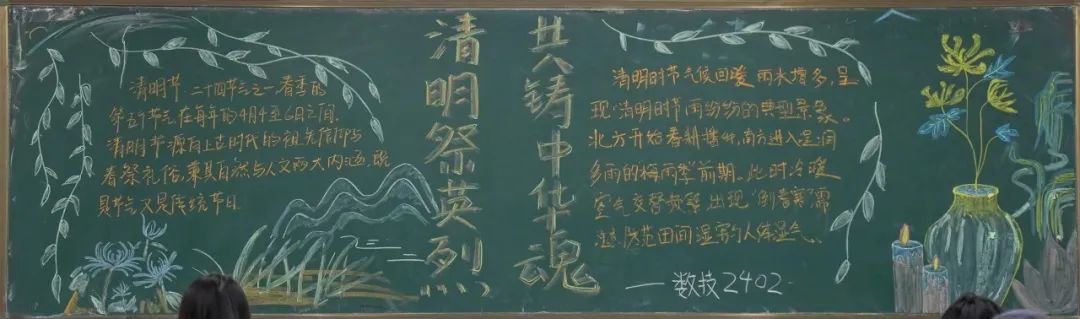 清明节,二十四节气之一,春季的
第五个节气在每年的4月4至6日之间.
清明节源自上古时代的祖先信仰与
春祭礼俗,兼具自然与人文两大内涵,既
是节气又是传统节日
清明祭英烈
共铸中华魂
清明时节气候回暖,雨水增多,呈
现“清明时节雨纷纷”的典型景象。
北方开始春耕播种,南方进入湿润
多雨的梅雨季前期.此时冷暖
空气交替频繁,出现“倒春寒”需
注意防范田间湿害与人体湿气。
——数技2402